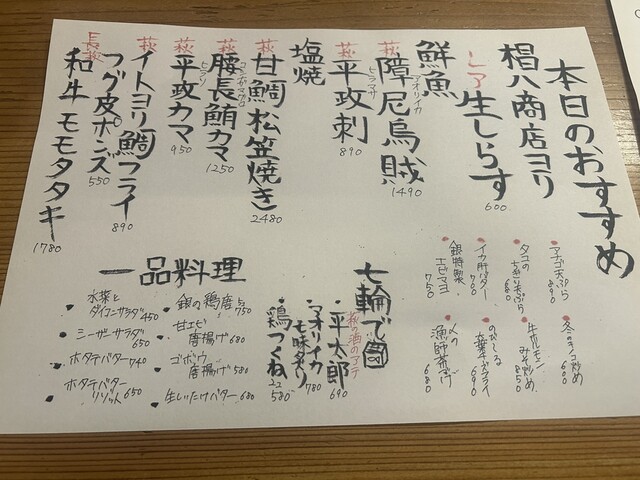 本日のおすすめ
椙八商店ヨリ
レア
生しらす 600
鮮魚
萩
障尼烏賊 1490
アオリイカ
萩
平政刺 890
ヒラマサ
塩焼
萩
甘鯛松笠焼き 2480
萩
腰長鮪カマ 1250
コシナガマグロ
萩
平政カマ 950
ヒラマサ
萩
イトヨリ鯛フライ 890
フグ皮ポンズ 550
長萩
和牛モモタタキ 1780
アナゴ天ぷら 890
タコの
天ぷら 680
イカ肝バター 700
銀特製
エビマヨ 750
炒め 600
牛ホルモン
みそ炒め 850
のどぐろ
大葉フライ 690
漁師漬け 680
七輪で
萩の酒のアテ
・平太郎 690
・アオリイカ
七味炙り 780
・鶏つくね 580
一品料理
・銀の鶏唐 750
・甘エビ
唐揚げ 680
・ゴボウ
唐揚げ 580
・生しいたけバター 680
・水菜と
ダイコンサラダ 450
・シーザーサラダ 650
・ホタテバター 740
・ホタテバター
リゾット 650